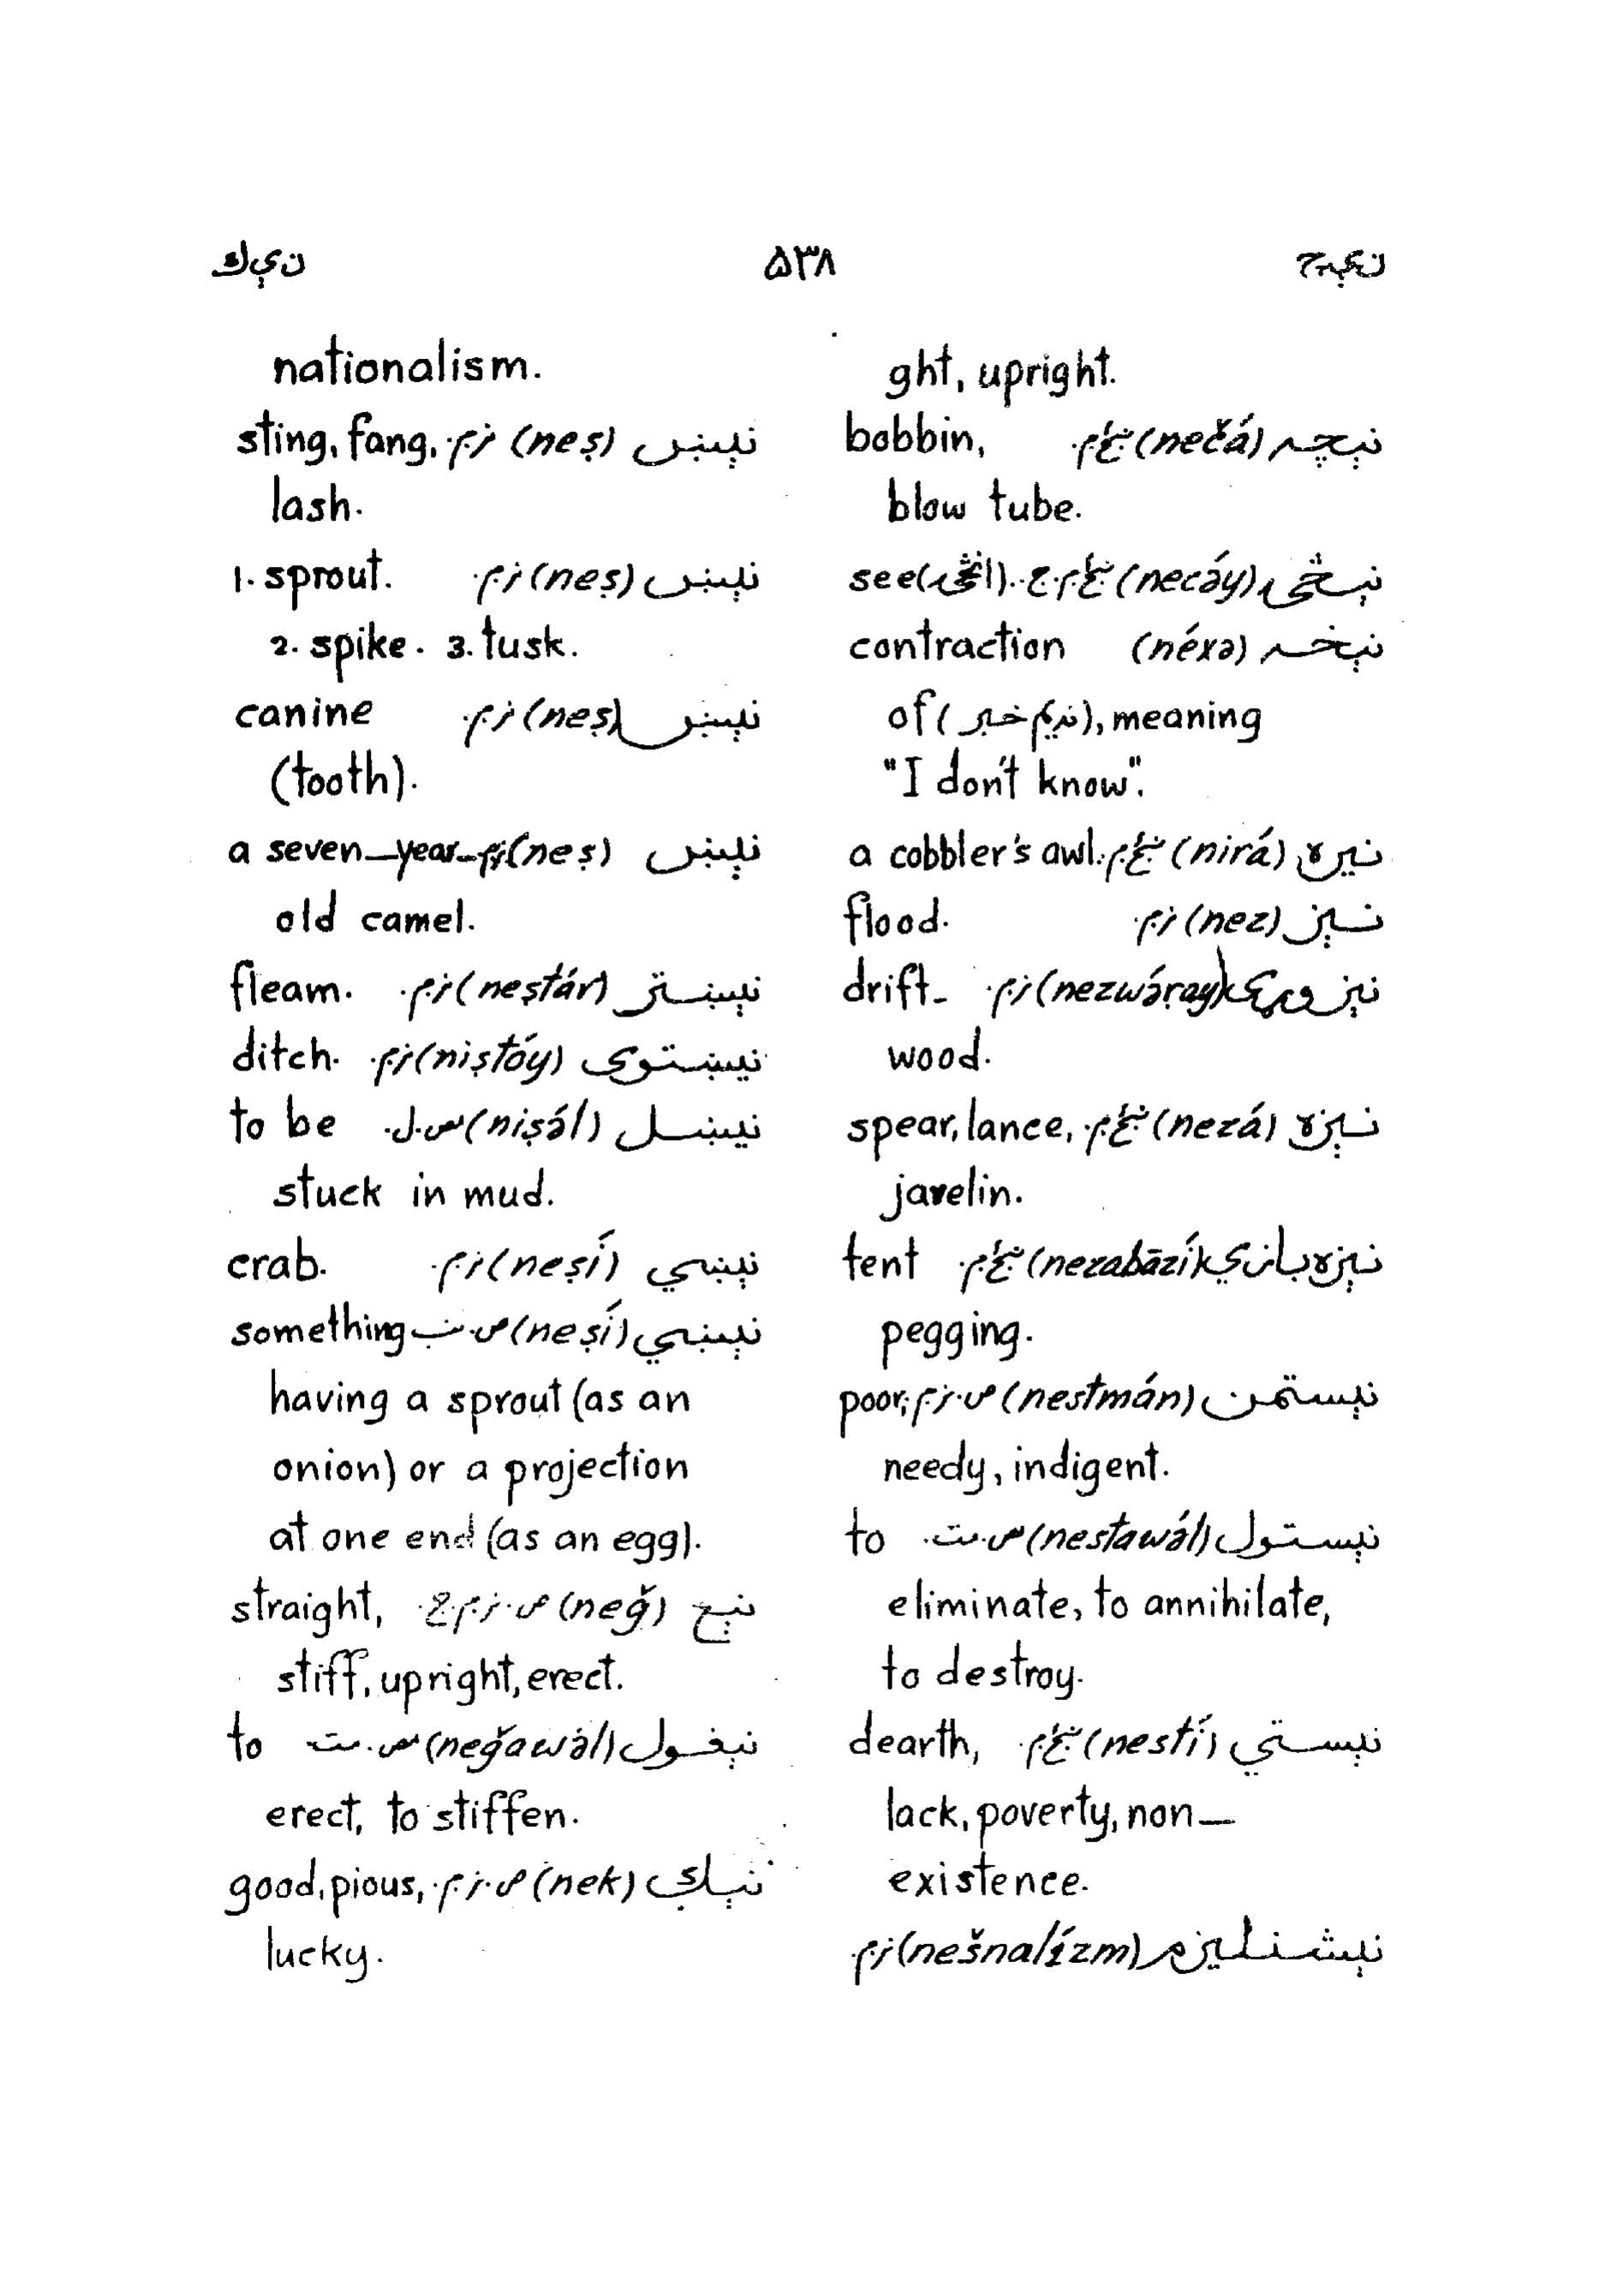 نېج ۵۳۸ نېك
ght, upright.
نېچه (nečá) ښځ.م. bobbin,
blow tube.
نېڅۍ (necáy) ښځ.م.ج. see
نېخه (néxə) contraction
of (نه يم خبر), meaning
"I don't know".
نيره (nirá) ښځ.م. a cobbler's awl.
نېز (nez) نر.م. flood.
نېزوړی (nezwáṛay) نر.م. drift-
wood.
نېزه (nezá) ښځ.م. spear, lance,
javelin.
نېزه بازي (nezabāzí) ښځ.م. tent
pegging.
نېستمن (nestmán) ص.نر.م. poor,
needy, indigent.
نېستول (nestawə́l) مص.مت. to
eliminate, to annihilate,
to destroy.
نېستي (nestí) ښځ.م. dearth,
lack, poverty, non-
existence.
نېشنليزم (nešnalízm) نر.م.
nationalism.
نېښ (neṣ) نر.م. sting, fang,
lash.
نېښ (neṣ) نر.م. 1. sprout.
2. spike. 3. tusk.
نېښ (neṣ) نر.م. canine
(tooth).
نېښ (neṣ) نر.م. a seven-year-
old camel.
نېښتر (neṣtár) نر.م. fleam.
نيښتوی (niṣtóy) نر.م. ditch.
نيښل (niṣə́l) مص.ل. to be
stuck in mud.
نېښي (neṣí) نر.م. crab.
نېښي (neṣí) ص.نب. something
having a sprout (as an
onion) or a projection
at one end (as an egg).
نېغ (neğ) ص.نر.م.ج. straight,
stiff, upright, erect.
نېغول (neğawə́l) مص.مت. to
erect, to stiffen.
نېك (nek) ص.نر.م. good, pious,
lucky.